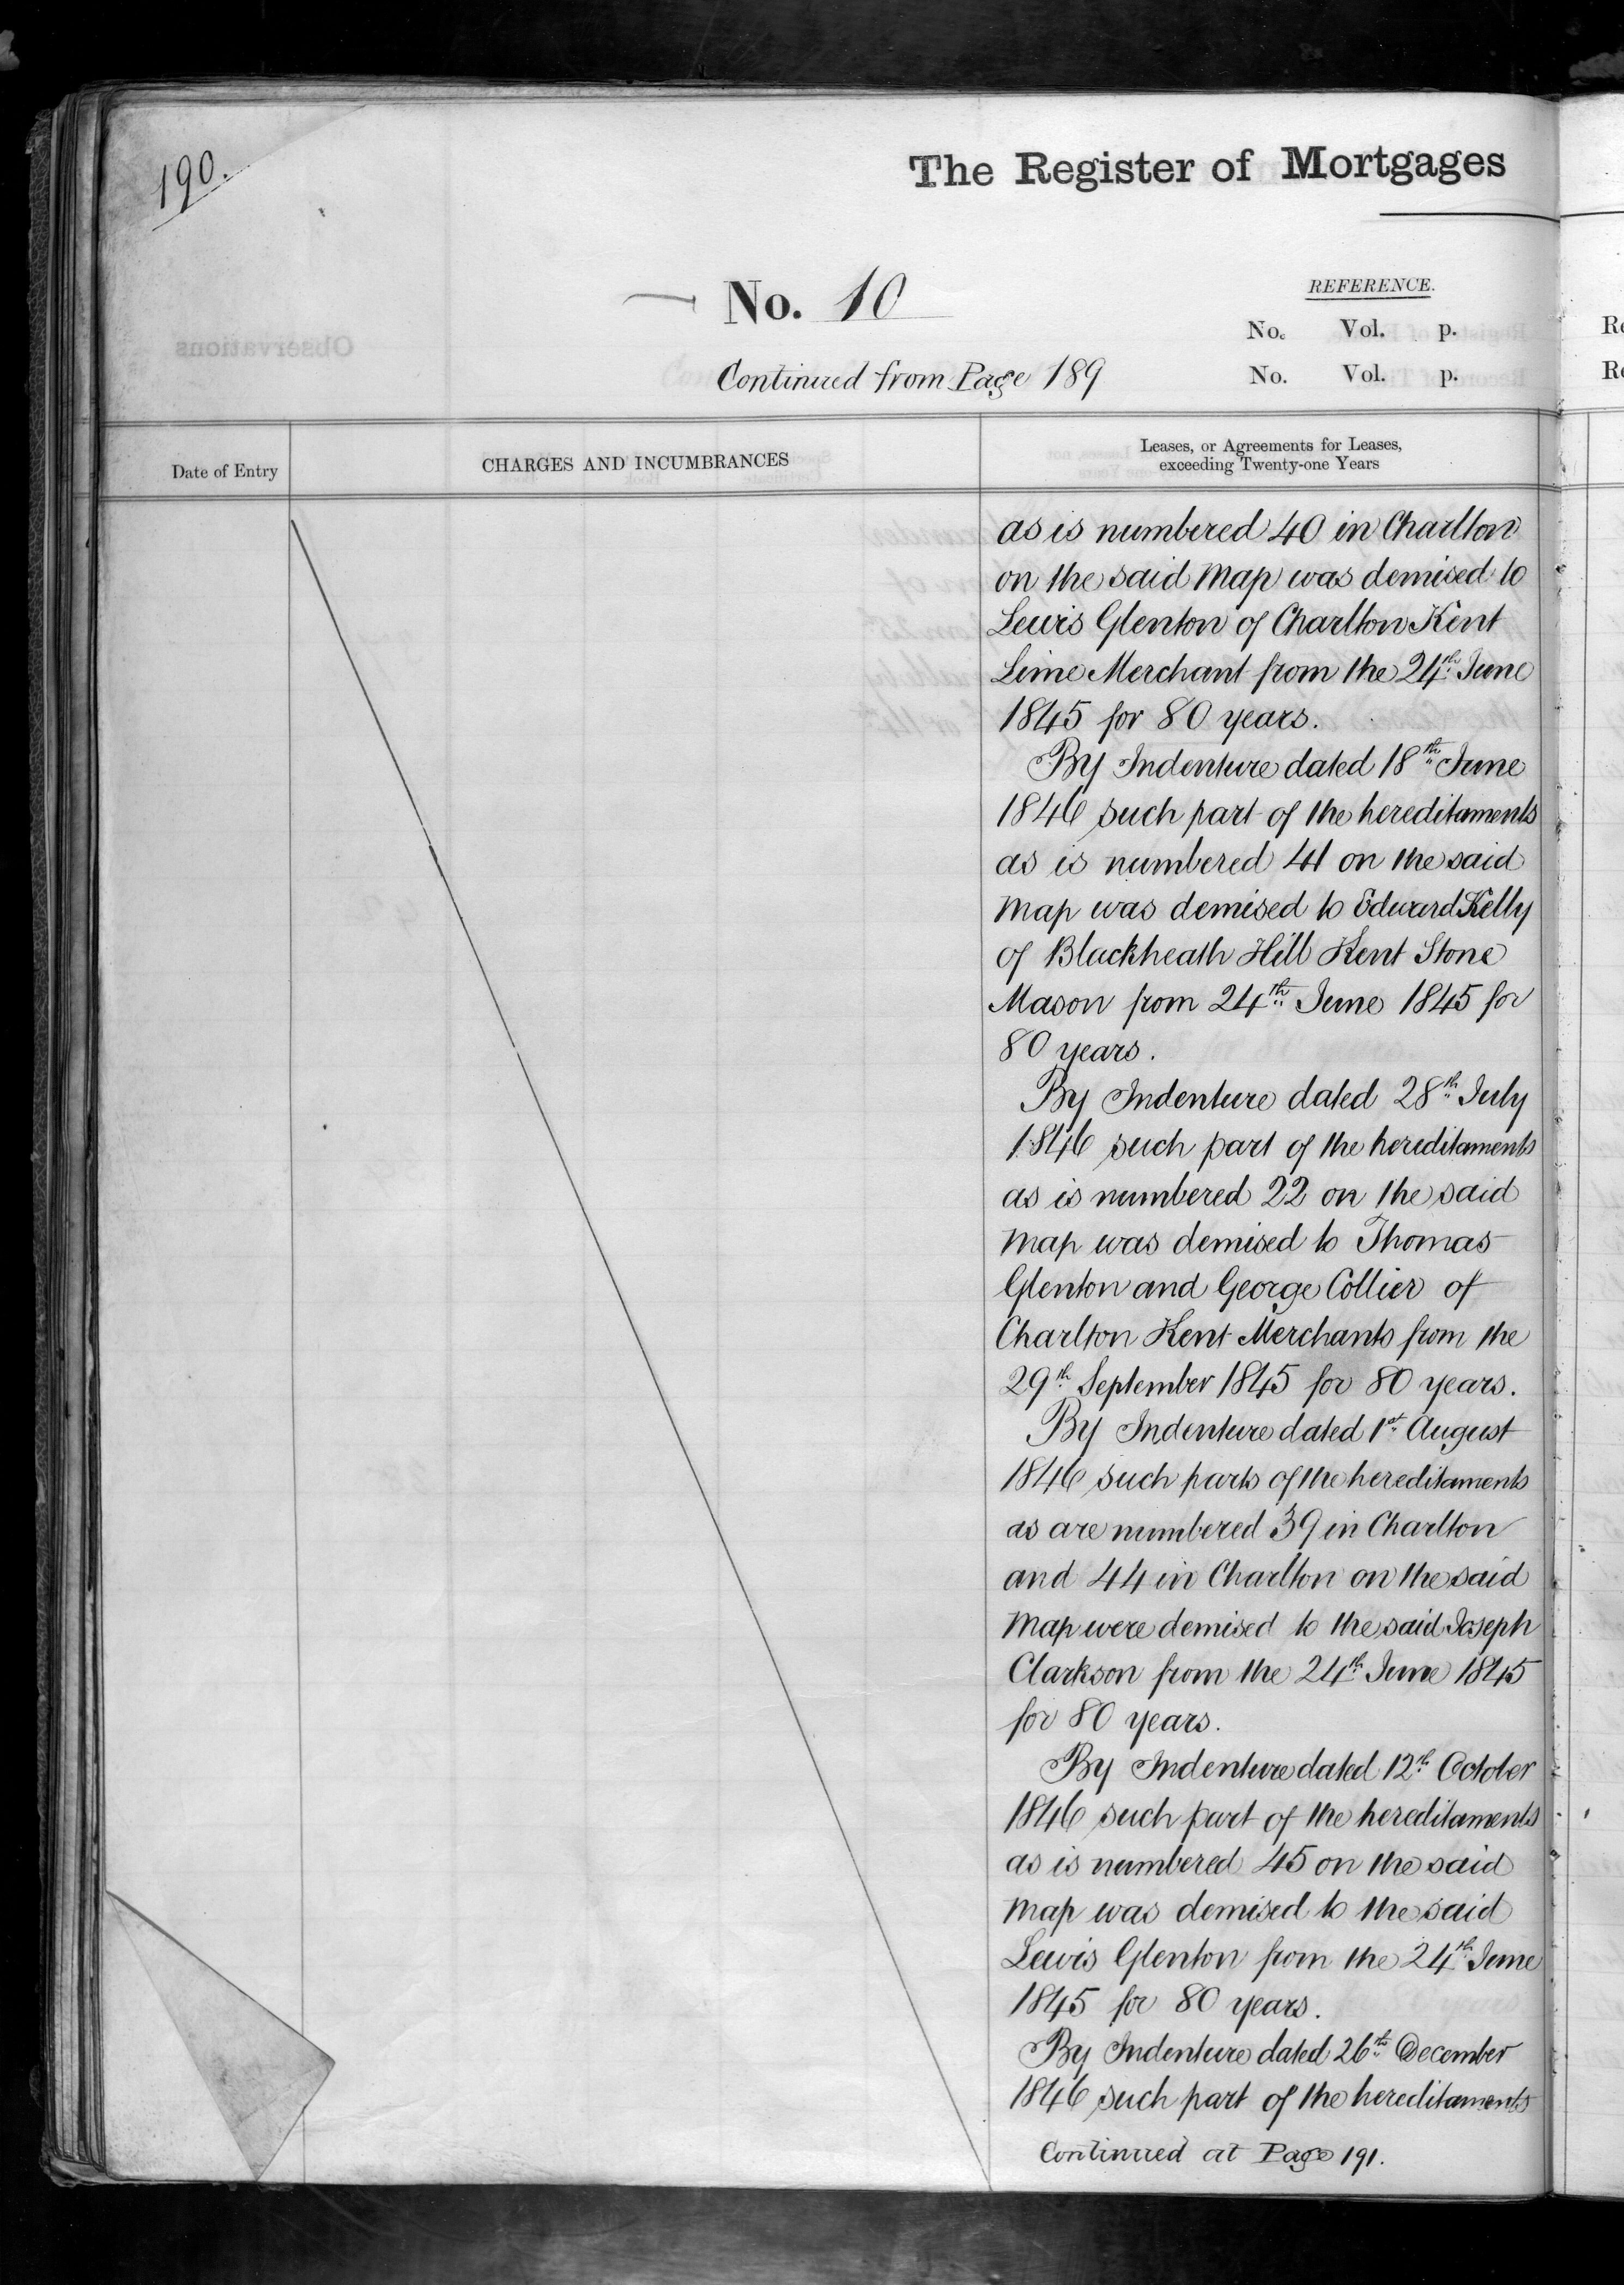 190.
The Register of Mortgages
No. 10
REFERENCE.
No. Vol. p.
Continued from Page 189
No. Vol. p.
Date of Entry
CHARGES AND INCUMBRANCES
Leases, or Agreements for Leases,
exceeding Twenty-one Years
as is numbered 40 in Charlton
on the said Map was demised to
Lewis Glenton of Charlton Kent
Lime Merchant from the 24th June
1845 for 80 years.
By Indenture dated 18th June
1846 such part of the hereditaments
as is numbered 41 on the said
Map was demised to Edward Kelly
of Blackheath Hill Kent Stone
Mason from 24th June 1845 for
80 years.
By Indenture dated 28th July
1846 such part of the hereditaments
as is numbered 22 on the said
Map was demised to Thomas
Glenton and George Collier of
Charlton Kent Merchants from the
29th September 1845 for 80 years.
By Indenture dated 1st August
1846 such parts of the hereditaments
as are numbered 39 in Charlton
and 44 in Charlton on the said
Map were demised to the said Joseph
Clarkson from the 24th June 1845
for 80 years.
By Indenture dated 12th October
1846 such part of the hereditaments
as is numbered 45 on the said
Map was demised to the said
Lewis Glenton from the 24th June
1845 for 80 years.
By Indenture dated 26th December
1846 such part of the hereditaments
Continued at Page 191.